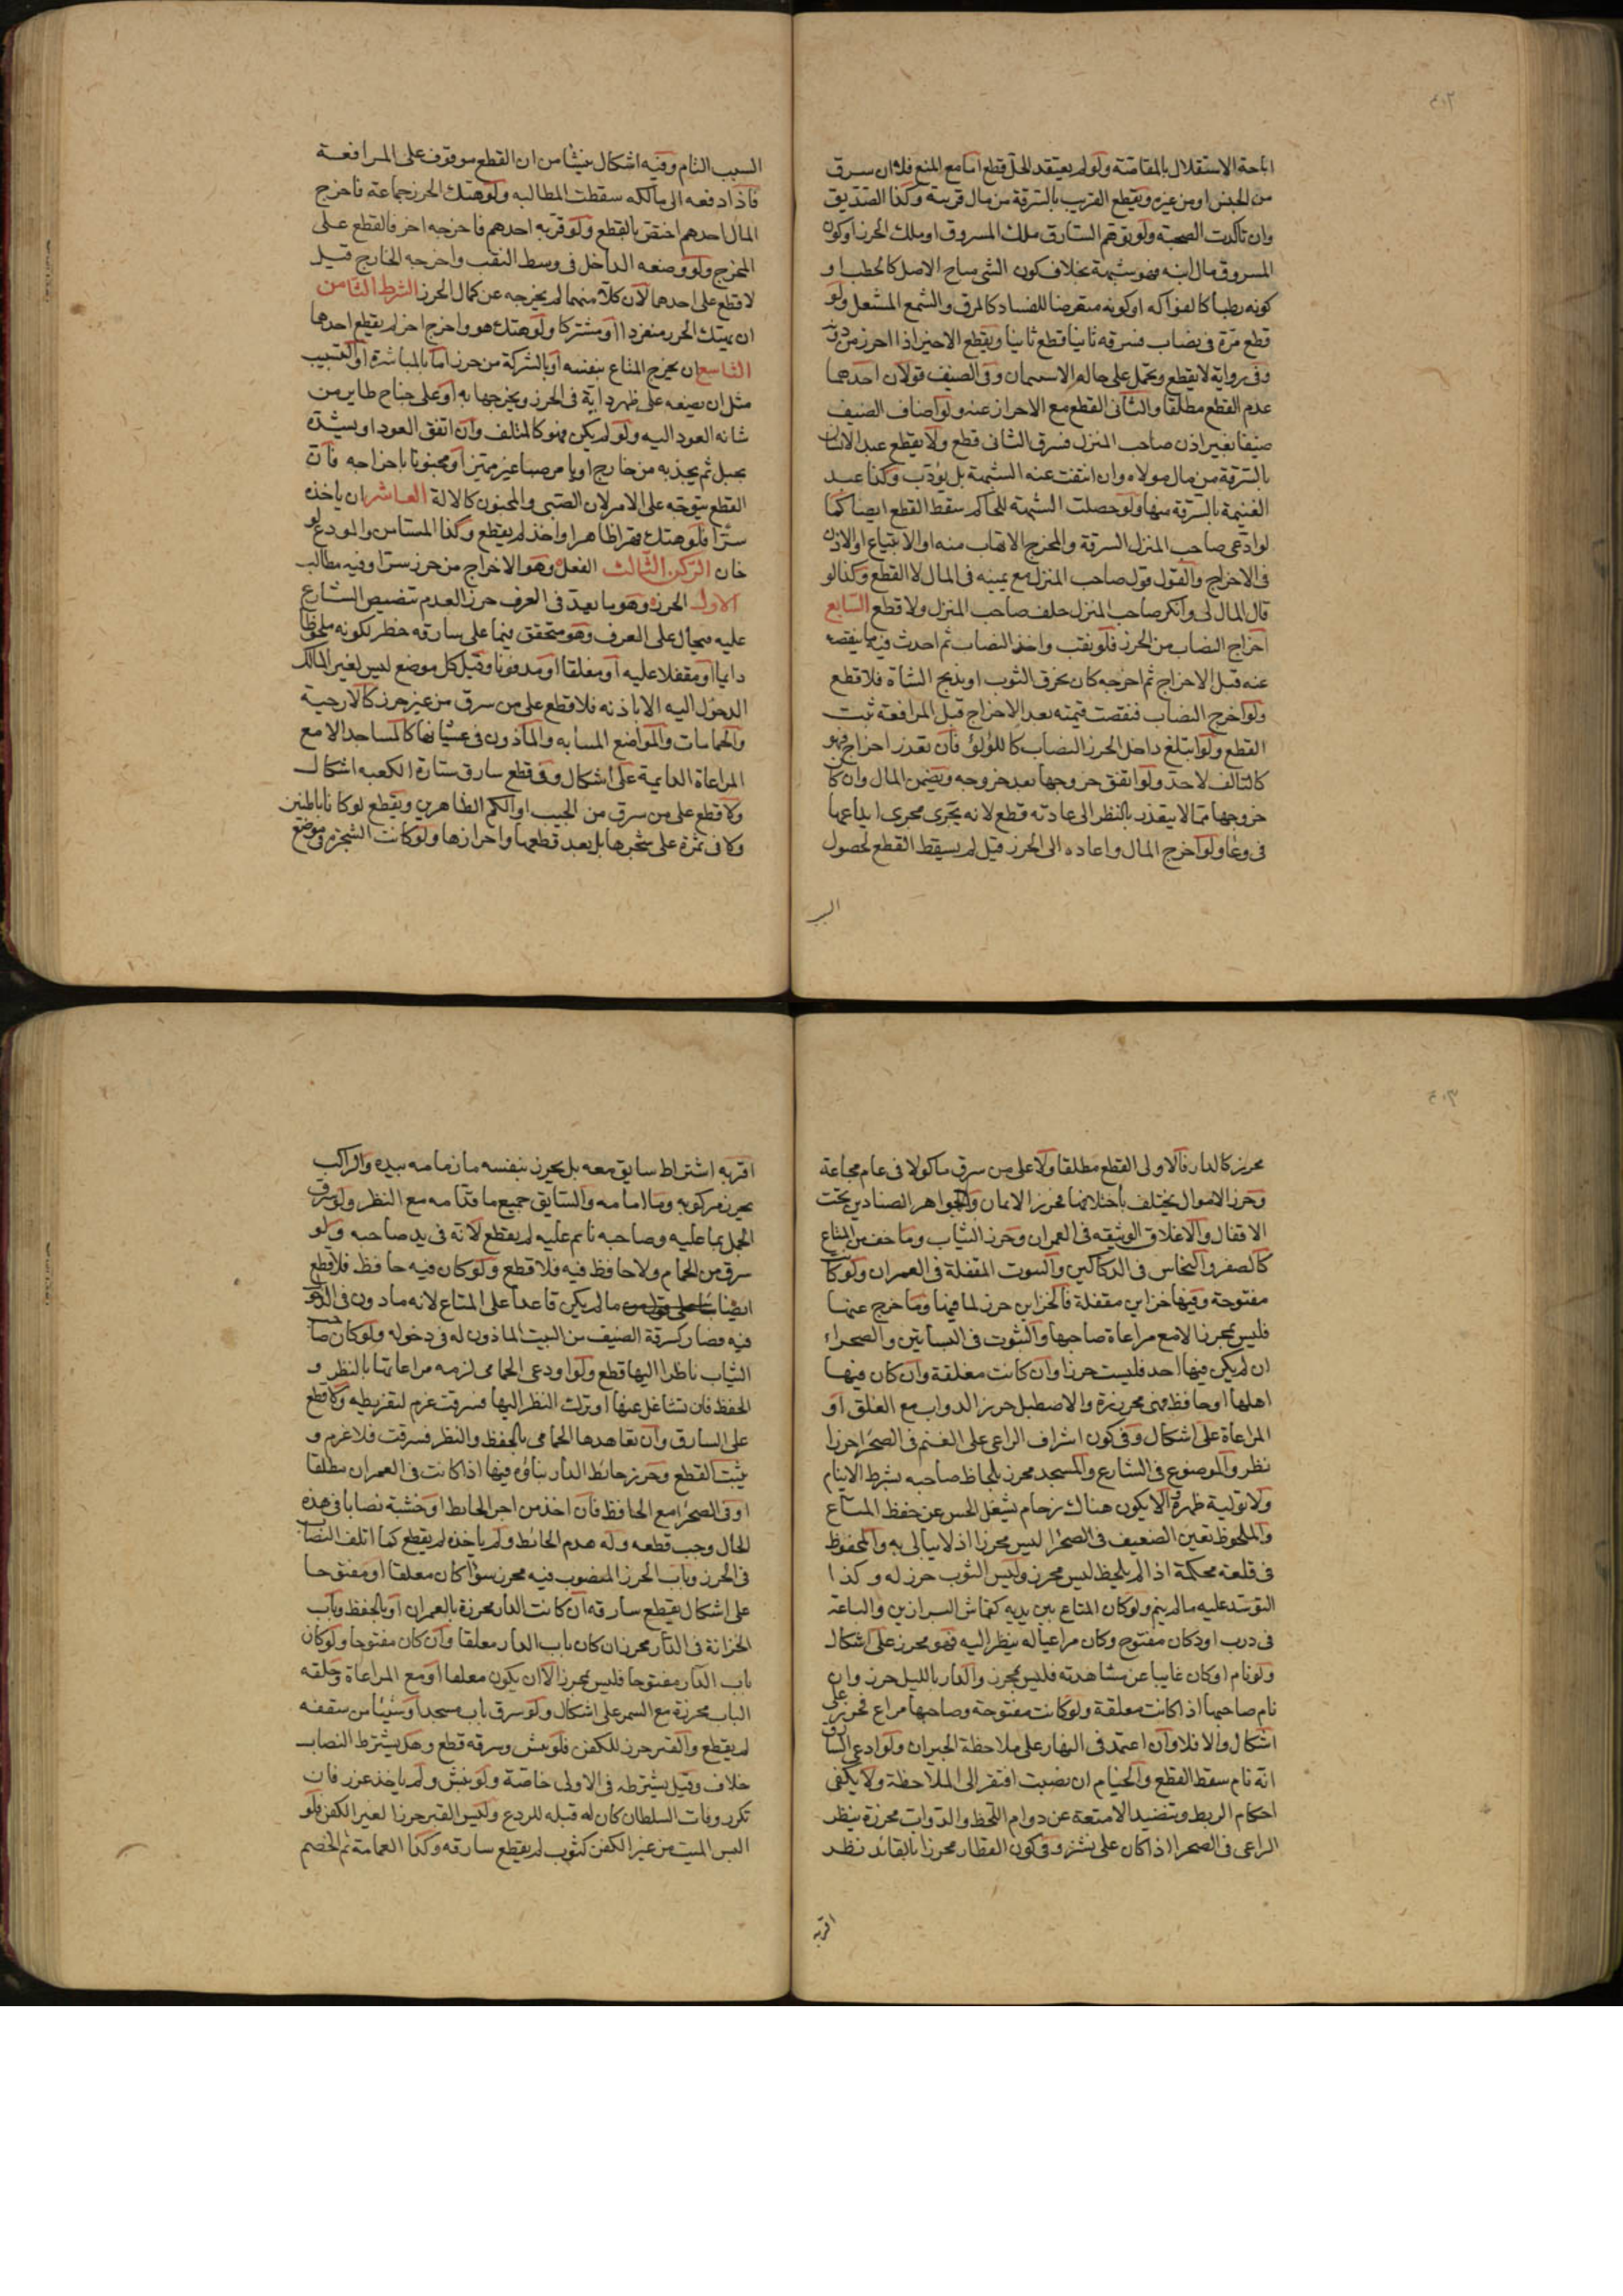 اباحة الاستقلال بالمقاصة ولو لم يعتقد الحل قطع اما مع المنع فلا ان سرق
من الجنس او من غيره ويقطع القريب بالسرقة من مال قريبه وكذا الصديق
وان تاكدت الصحبة ولو توهم السارق ملك المسروق او ملك الحرز او كون
المسروق مال ابنه فهو شبهة بخلاف كون الشى مباح الاصل كالحطب او
كونه رطبا كالفواكه او كونه متعرضا للفساد كالمرق والشمع المشعل ولو
قطع مرة فى نصاب فسرقه ثانيا قطع ثانيا ويقطع الاجير اذا احرز من دونه
وفى رواية لا يقطع ويحمل على حالة الاستيمان وفى الضيف قولان احدهما
عدم القطع مطلقا والثانى القطع مع الاحراز عنه ولو اضاف الضيف
ضيفا بغير اذن صاحب المنزل فسرق الثانى قطع ولا يقطع عبد الانسان
بالسرقة من مال مولاه وان انتفت عنه الشبهة بل يؤدب وكذا عبد
الغنيمة بالسرقة منها ولو حصلت الشبهة للحاكم سقط القطع ايضا كما
لو ادعى صاحب المنزل السرقة والمخرج الاتهاب منه او الابتياع او الاذن
فى الاخراج والقول قول صاحب المنزل مع يمينه فى المال لا القطع وكذا لو
قال المال لى وانكر صاحب المنزل حلف صاحب المنزل ولا قطع السابع
اخراج النصاب من الحرز فلو نقب واخذ النصاب ثم احدث فيه ما ينقصه
عنه قبل الاخراج ثم اخرجه كان يخرق الثوب او يذبح الشاة فلا قطع
ولو اخرج النصاب فنقصت قيمته بعد الاخراج قبل المرافعة ثبت
القطع ولو ابتلع داخل الحرز النصاب كاللؤلؤ فان تعذر اخراجه فهو
كالتالف لا حد ولو اتفق خروجها بعد خروجه ويضمن المال وان كان
خروجها مما لا يتعذر بالنظر الى عادته قطع لانه يجرى مجرى ايداعها
فى وعا ولو اخرج المال واعاده الى الحرز قيل لم يسقط القطع لحصول
السبب
السبب التام وفيه اشكال ينشا من ان القطع موقوف على المرافعة
فاذا دفعه الى مالكه سقطت المطالبه ولو هتك الحرز جماعة فاخرج
المال احدهم اختص بالقطع ولو قربه احدهم فاخرجه اخر فالقطع على
المخرج ولو وضعه الداخل فى وسط النقب واخرجه الخارج قيل
لا قطع على احدهما لان كلا منهما لم يخرجه عن كمال الحرز الشرط الثامن
ان يهتك الحرز منفردا او مشتركا ولو هتك هو واخرج اخر لم يقطع احدهما
التاسع ان يخرج المتاع بنفسه او بالشركة من حرز اما بالمباشرة او التسبيب
مثل ان يضعه على ظهر دابة فى الحرز ويخرجها به او على جناح طاير من
شانه العود اليه ولو لم يكن فهو كالمتلف وان اتفق العود او يشده
بحبل ثم يجذبه من خارج او يامر صبيا غير مميز او مجنونا باخراجه فان
القطع يتوجه على الامر لان الصبى والمجنون كالالة العاشر ان ياخذه
سرا فلو هتك قهرا ظاهرا واخذ لم يقطع وكذا المستامن والمودع لو
خان الركن الثالث الفعل وهو الاخراج من حرز سرا وفيه مطالب
الاول الحرز وهو ما يعد فى العرف حرزا لعدم تنصيص الشارع
عليه فيحال على العرف وهو متحقق فيما على سارقه خطر لكونه ملحوظا
دايما او مقفلا عليه او مغلقا او مدفونا وقيل كل موضع ليس لغير المالك
الدخول اليه الا باذنه فلا قطع على من سرق من غير حرز كالارحية
والحمامات والمواضع المنتابه والماذون فى غشيانها كالمساجد الا مع
المراعاة الدايمة على اشكال وفى قطع سارق ستارة الكعبه اشكال
ولا قطع على من سرق من الجيب او الكم الظاهرين ويقطع لو كانا باطنين
ولا فى ثمرة على شجرها بل بعد قطعها واحرازها ولو كانت الشجرة فى موضع
محرز كالدار فالاولى القطع مطلقا ولا على من سرق ماكولا فى عام مجاعة
وحرز الاموال يختلف باختلافها فحرز الاثمان والجواهر الصناديق تحت
الاقفال والاغلاق الوثيقه فى العمران وحرز الثياب وما خف من المتاع
كالصفر والنحاس فى الدكاكين والبيوت المقفلة فى العمران ولو كانت
مفتوحة وفيها خزاين مقفلة فالخزاين حرز لما فيها وما خرج عنها
فليس بمحرز الا مع مراعاة صاحبها والبيوت فى البساتين والصحراء
ان لم يكن فيها احد فليست حرزا وان كانت مغلقة وان كان فيها
اهلها او حافظ فهى محرزة والاصطبل حرز الدواب مع الغلق او
المراعاة على اشكال وفى كون اشراف الراعى على الغنم فى الصحرا حرزا
نظر والموضوع فى الشارع والمسجد محرز بلحاظ صاحبه بشرط الاينام
ولا توليه ظهره والا يكون هناك زحام يشغل الحس عن حفظ المتاع
والملحوظ بعين الضعيف فى الصحرا ليس محرزا اذ لا يبالى به والمحفوظ
فى قلعة محكمة اذا لم يلحظ ليس محرز وليس الثوب حرز له وكذا
التوسد عليه ما لم ينم ولو كان المتاع بين يديه كقماش البزازين والباعة
فى درب او دكان مفتوح وكان مراعيا له ينظر اليه فهو محرز على اشكال
ولو نام او كان غايبا عن مشاهدته فليس بمحرز والدار بالليل حرز وان
نام صاحبها اذا كانت مغلقة ولو كانت مفتوحة وصاحبها مراع فحرز على
اشكال والا فلا وان اعتمد فى النهار على ملاحظة الجيران ولو ادعى السارق
انه نام سقط القطع والخيام ان نصبت افتقر الى الملاحظة ولا يكفى
احكام الربط وتنضيد الامتعة عن دوام اللحظ والدواب محرزة بنظر
الراعى فى الصحرا اذا كان على نشز وفى كون القطار محرزا بالقائد نظر
اقربه
اقربه اشتراط سايق معه بل يحرز بنفسه ما زمامه بيده والراكب
يحرز مركوبه وما امامه والسايق جميع ما قدامه مع النظر ولو سرق
الجمل بما عليه وصاحبه نايم عليه لم يقطع لانه فى يد صاحبه ولو
سرق من الحمام ولا حافظ فيه فلا قطع ولو كان فيه حافظ فلا قطع
ايضا ما لم يكن قاعدا على المتاع لانه ماذون فى الدخول
فيه فصار كسرقة الضيف من البيت الماذون له فى دخوله ولو كان صاحب
الثياب ناظرا اليها قطع ولو اودعى الحمامى لزمه مراعاتها بالنظر و
الحفظ فان تشاغل عنها او ترك النظر اليها فسرقت غرم لتفريطه ولا قطع
على السارق وان تعاهدها الحمامى بالحفظ والنظر فسرقت فلا غرم و
يثبت القطع وحرز حائط الدار بناؤه فيها اذا كانت فى العمران مطلقا
او فى الصحرا مع الحافظ فان اخذ من اجر الحائط او خشبة نصابا فى هذه
الحال وجب قطعه وله هدم الحائط ولم ياخذه لم يقطع كما اتلف النصاب
فى الحرز وباب الحرز المنصوب فيه محرز سوا كان مغلقا او مفتوحا
على اشكال يقطع سارقه ان كانت الدار محرزة بالعمران او بالحفظ وباب
الخزانة فى الدار محرز ان كان باب الدار مغلقا وان كان مفتوحا ولو كان
باب الدار مفتوحا فليس بمحرز الا ان يكون مغلقا او مع المراعاة وحلقه
الباب محرزة مع السمر على اشكال ولو سرق باب مسجد او شيئا من سقفه
لم يقطع والقبر حرز للكفن فلو نبش وسرقه قطع وهل يشترط النصاب
خلاف وقيل يشترطه فى الاولى خاصة ولو نبش ولم ياخذ عزر فان
تكرر وفات السلطان كان له قتله للردع وليس القبر حرزا لغير الكفن فلو
البس الميت من غير الكفن كثوب لم يقطع سارقه وكذا العمامة ثم الخصم